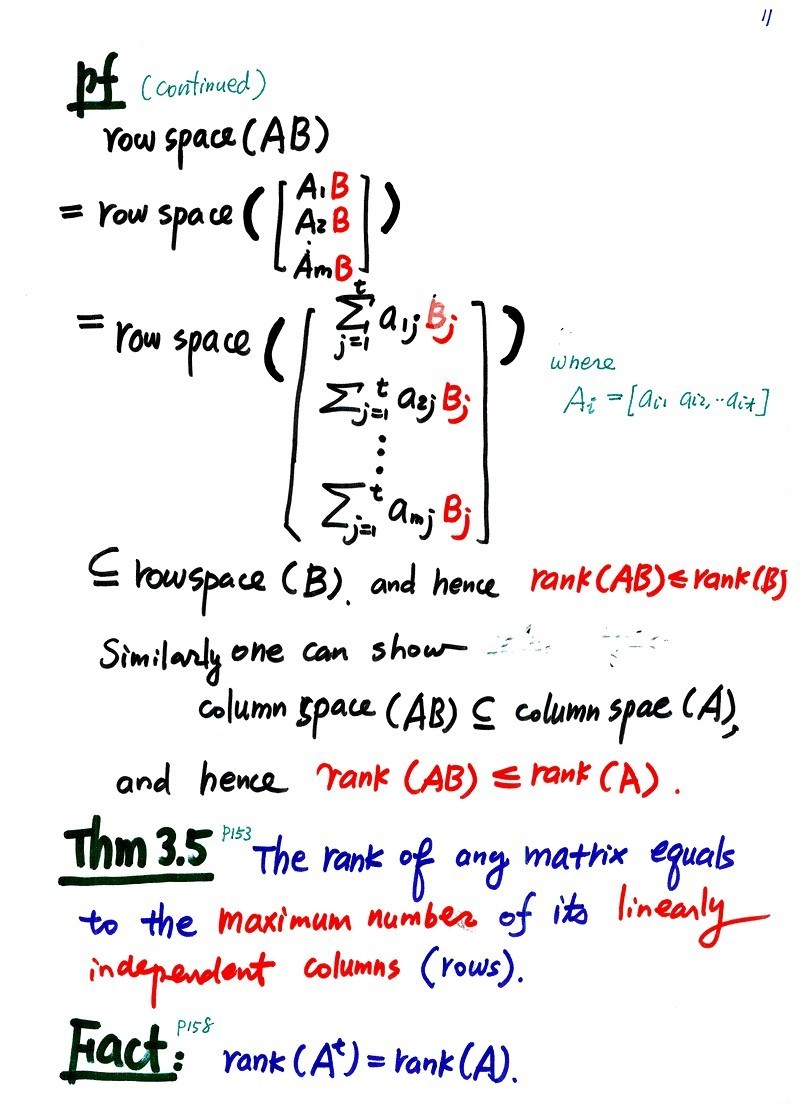 11
pf (continued)
row space (AB)
= row space ( [ A₁B
A₂B
⋮
AₘB ] )
= row space ( [ ∑_{j=1}^{t} a_{1j} B_j
∑_{j=1}^{t} a_{2j} B_j
⋮
∑_{j=1}^{t} a_{mj} B_j ] )
where
A_i = [a_{i1} a_{i2}, ·· a_{it}]
⊆ row space (B). and hence rank(AB) ≤ rank(B)
Similarly one can show
column space (AB) ⊆ column spae (A),
and hence rank (AB) ≤ rank (A).
Thm 3.5 P153 The rank of any matrix equals
to the maximum number of its linearly
independent columns (rows).
Fact: P158 rank (Aᵗ) = rank (A).